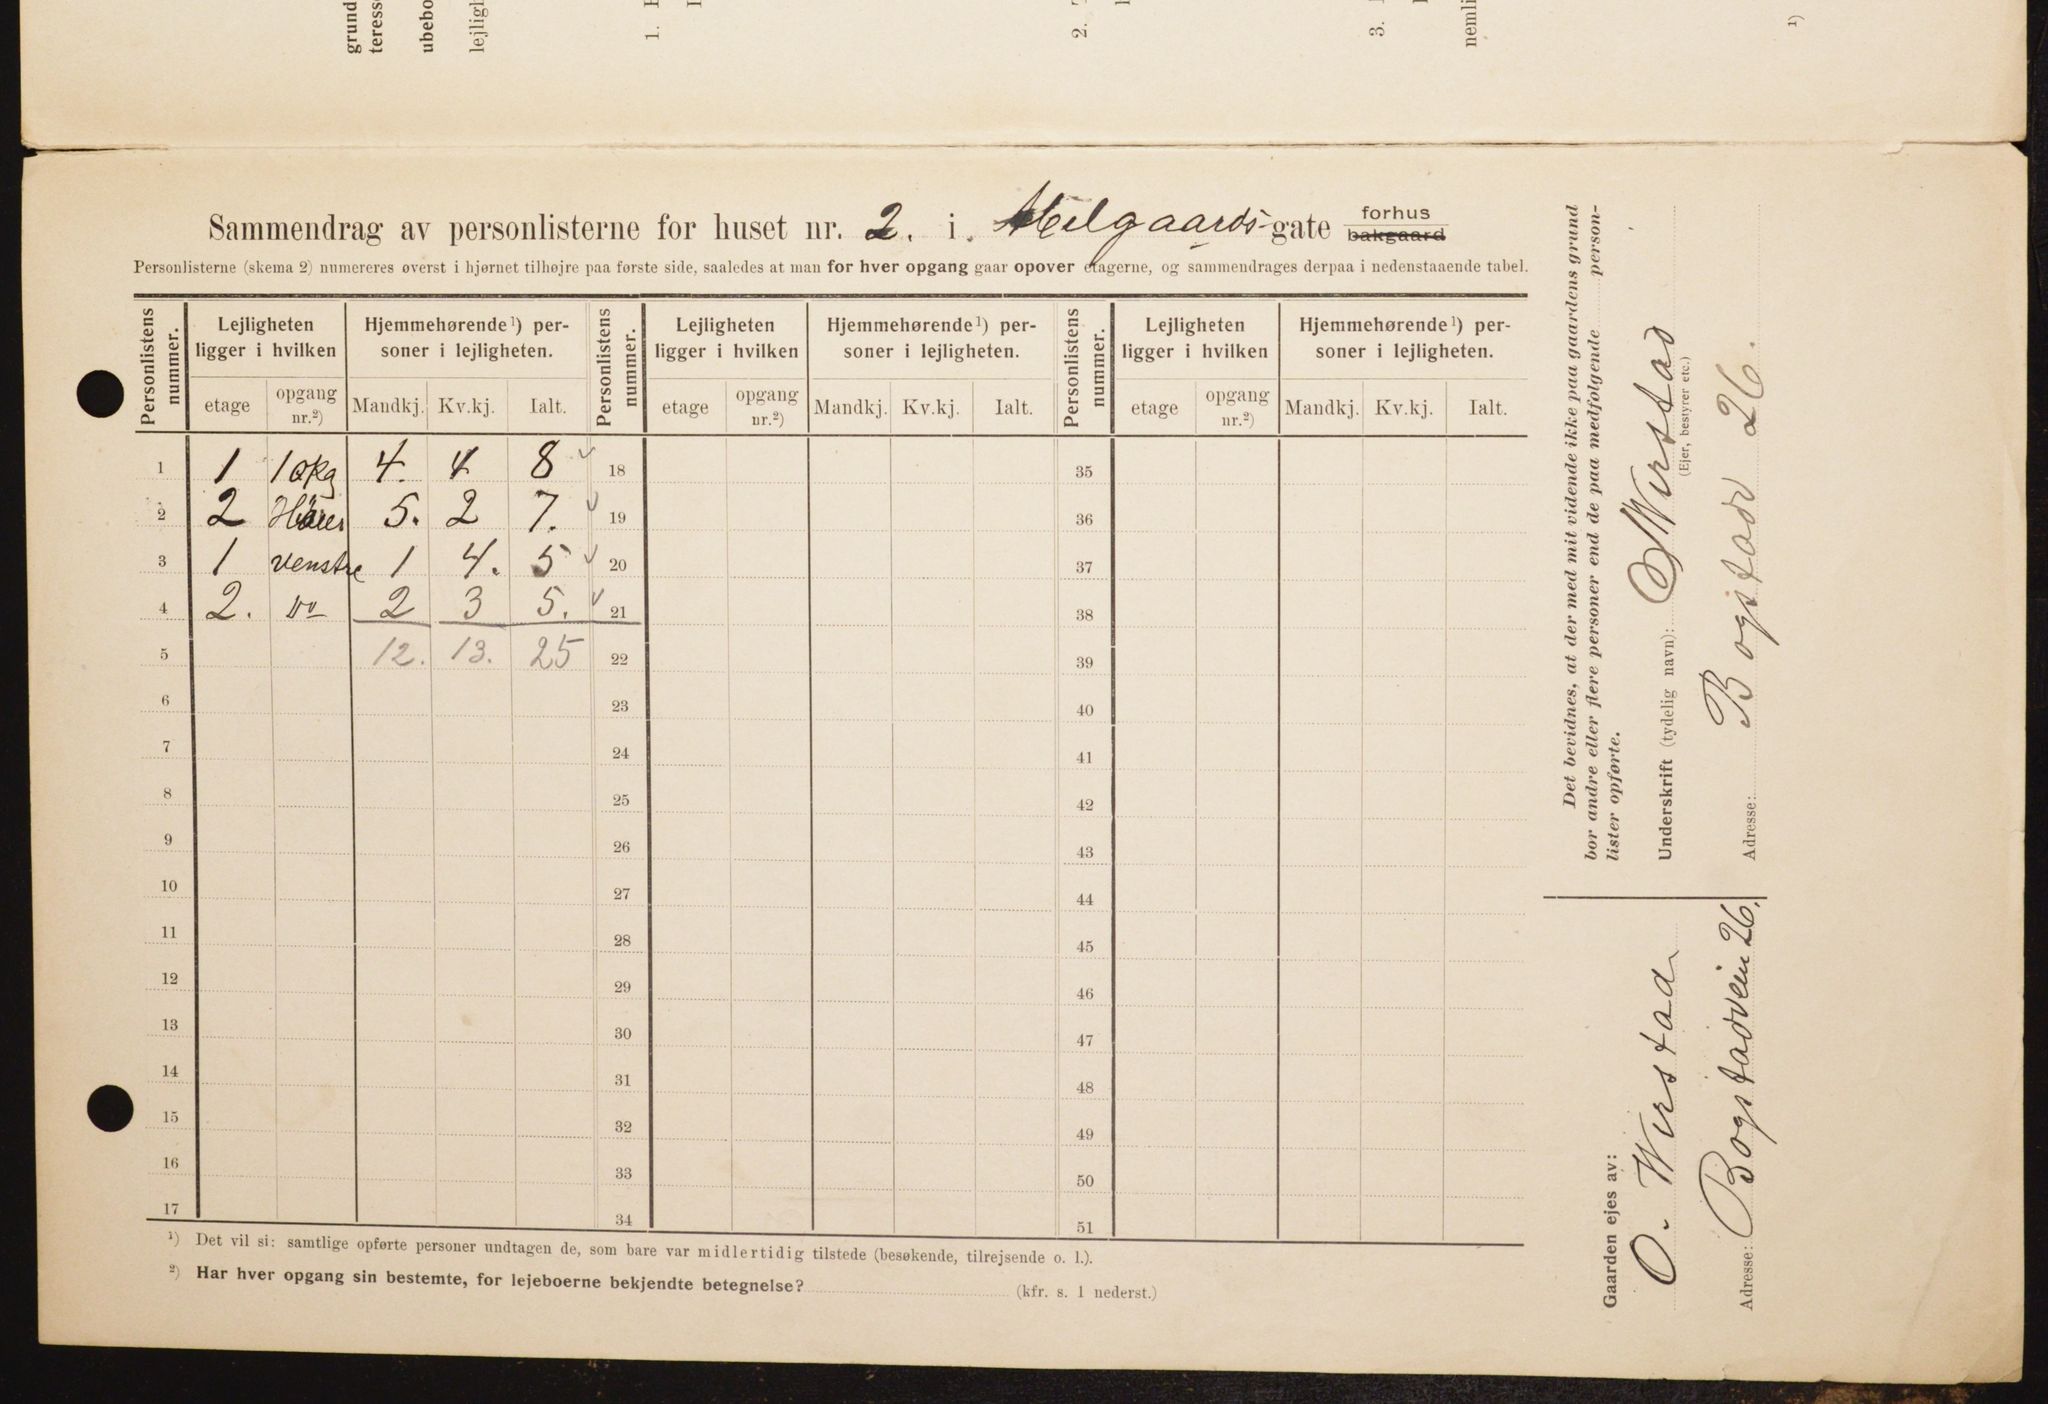 grund
teresse
ubebo
lejligh
1.
2.
3.
nemli
¹)
Sammendrag av personlisterne for huset nr. 2. i Melgaards-gate forhus
bakgaard
Personlisterne (skema 2) numereres øverst i hjørnet tilhøjre paa første side, saaledes at man for hver opgang gaar opover etagerne, og sammendrages derpaa i nedenstaaende tabel.
Personlistens nummer. Lejligheten ligger i hvilken Hjemmehørende¹) personer i lejligheten. Personlistens nummer. Lejligheten ligger i hvilken Hjemmehørende¹) personer i lejligheten. Personlistens nummer. Lejligheten ligger i hvilken Hjemmehørende¹) personer i lejligheten.
etage opgang nr.²) Mandkj. Kv.kj. Ialt. etage opgang nr.²) Mandkj. Kv.kj. Ialt. etage opgang nr.²) Mandkj. Kv.kj. Ialt.
1 1 1 opg 4. 4 8 18 35
2 2 5. 2 7. 19 36
3 1 venstre 1 4. 5 20 37
4 2. do 2 3 5. 21 38
5 12. 13. 25 22 39
6 23 40
7 24 41
8 25 42
9 26 43
10 27 44
11 28 45
12 29 46
13 30 47
14 31 48
15 32 49
16 33 50
17 34 51
¹) Det vil si: samtlige opførte personer undtagen de, som bare var midlertidig tilstede (besøkende, tilrejsende o. l.).
²) Har hver opgang sin bestemte, for lejeboerne bekjendte betegnelse? (kfr. s. 1 nederst.)
Det bevidnes, at der med mit vidende ikke paa gaardens grund
bor andre eller flere personer end de paa medfolgende person-
lister opførte.
Underskrift (tydelig navn): O Wirstad
(Ejer, bestyrer etc.)
Adresse: Bogstadv 26.
Gaarden ejes av:
O. Wirstad
Adresse: Bogstadveien 26.